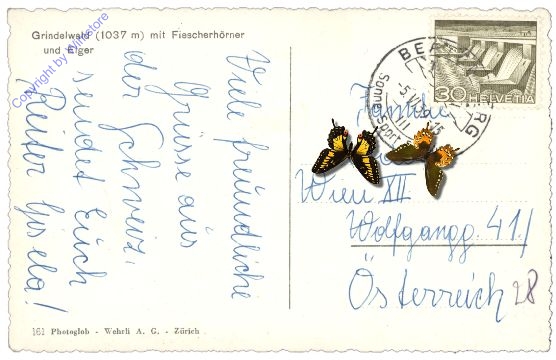 Grindelwald (1037 m) mit Fiescherhörner
und Eiger
Copyright by Vinstore
Viele freundliche
Grüsse aus
der Schweiz,
sendet Euch
Reiter Gisela!
161 Photoglob - Wehrli A. G. - Zürich
30 HELVETIA
BEA
RG
-5.VI
15
III
Sonne Sport
Familie
Wien XII
Wolfgangg. 41/
Österreich
28